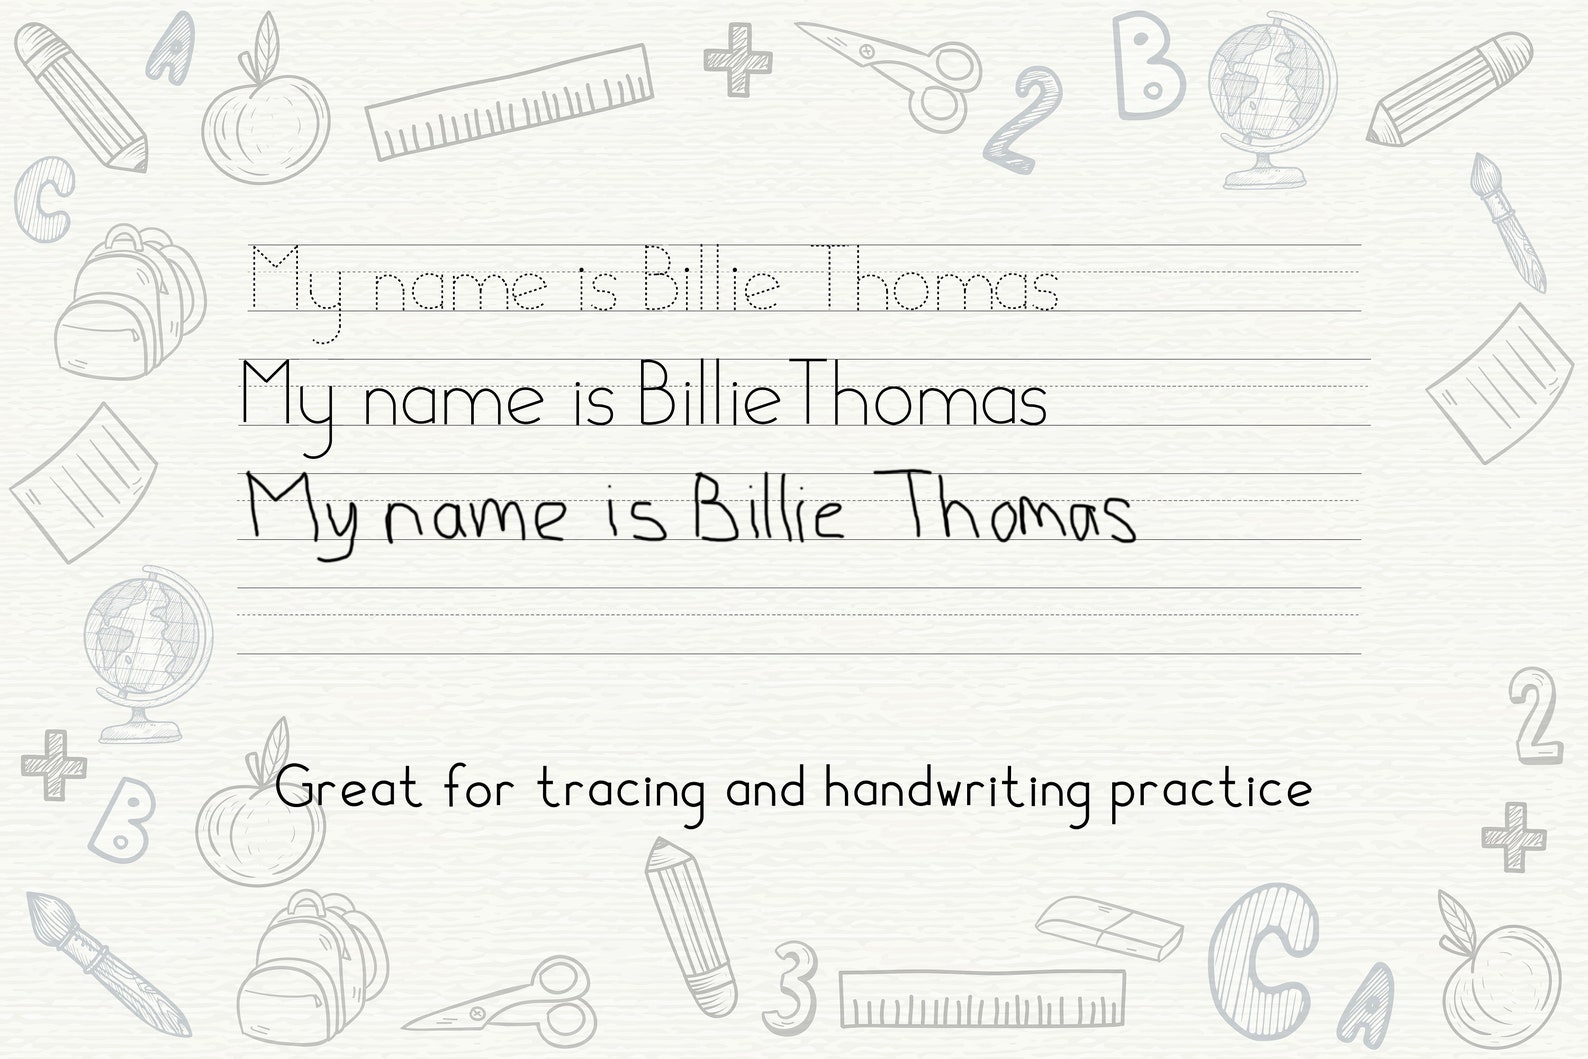 A
2
B
C
My name is Billie Thomas
My name is Billie Thomas
My name is Billie Thomas
2
B
Great for tracing and handwriting practice
3
C
A